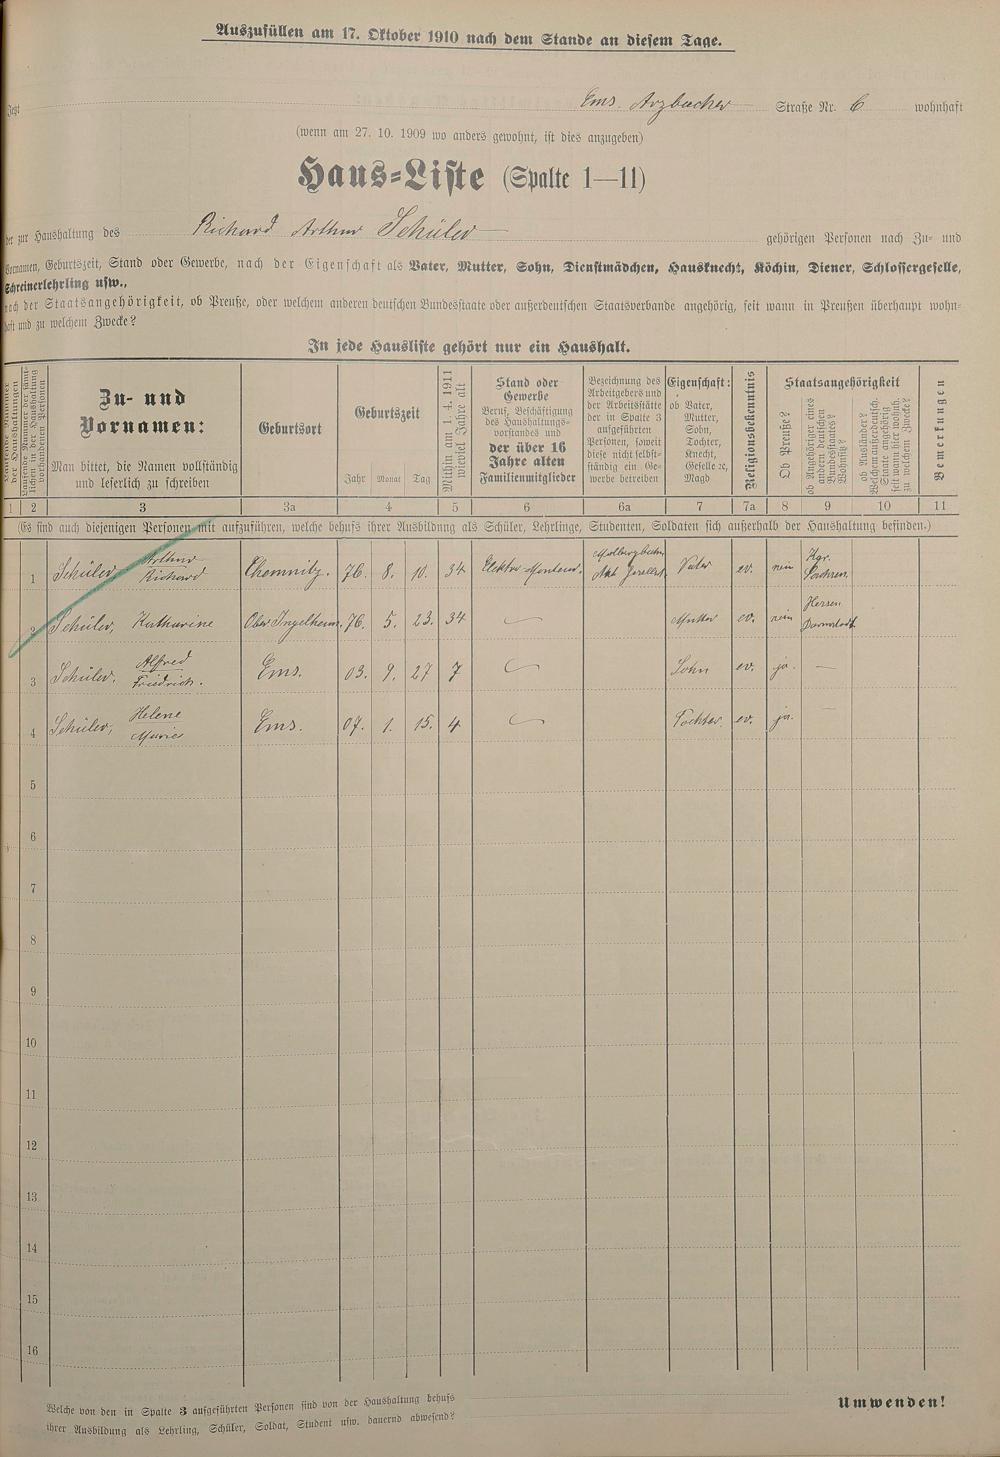 Auszufüllen am 17. Oktober 1910 nach dem Stande an diesem Tage.
Jetzt Ems. Arzbacher Straße Nr. 6 wohnhaft
(wenn am 27. 10. 1909 wo anders gewohnt, ist dies anzugeben)
Haus=Liste (Spalte 1—11)
der zur Haushaltung des Richard Arthur Schüler gehörigen Personen nach Zu= und
Vornamen, Geburtszeit, Stand oder Gewerbe, nach der Eigenschaft als Vater, Mutter, Sohn, Dienstmädchen, Hausknecht, Köchin, Diener, Schlossergeselle,
Schreinerlehrling usw.,
nach der Staatsangehörigkeit, ob Preuße, oder welchem anderen deutschen Bundesstaate oder außerdeutschen Staatsverbande angehörig, seit wann in Preußen überhaupt wohn=
haft und zu welchem Zwecke?
In jede Hausliste gehört nur ein Haushalt.
Laufende Nummer der Haushaltungen
Laufende Nummer der sämt=
lichen in der Haushaltung
vorhandenen Personen
Zu= und
Vornamen:
Man bittet, die Namen vollständig
und leserlich zu schreiben
Geburtsort
Geburtszeit
Jahr Monat Tag
Mithin am 1. 4. 1911
wieviel Jahre alt
Stand oder
Gewerbe
Beruf, Beschäftigung
des Haushaltungs=
vorstandes und
der über 16
Jahre alten
Familienmitglieder
Bezeichnung des
Arbeitgebers und
der Arbeitsstätte
der in Spalte 3
aufgeführten
Personen, soweit
diese nicht selbst=
ständig ein Ge=
werbe betreiben
Eigenschaft:
ob Vater,
Mutter,
Sohn,
Tochter,
Knecht,
Geselle ꝛc,
Magd
Religionsbekenntnis
Staatsangehörigkeit
Ob Preuße?
ob Angehöriger eines
andern deutschen
Bundesstaates?
Wohnsitz?
ob Ausländer?
Welchem außerdeutsch.
Staate angehörig
seit wann hier wohnh.
zu welchem Zwecke?
Bemerkungen
1 2 3 3a 4 5 6 6a 7 7a 8 9 10 11
(Es sind auch diejenigen Personen mit aufzuführen, welche behufs ihrer Ausbildung als Schüler, Lehrlinge, Studenten, Soldaten sich außerhalb der Haushaltung befinden.)
1 Schüler Arthur Richard Chemnitz. 76. 8. 10. 34 Elektro-Monteur. Malbergbahn Akt Gesellsch. Vater ev. nein Kgr. Sachsen
2 Schüler, Katharine Ober Ingelheim. 76. 5. 23. 34 Mutter ev. nein Hessen Darmstadt
3 Schüler. Alfred Friedrich. Ems. 03. 9. 27 7 Sohn ev. ja. —
4 Schüler, Helene Marie Ems. 07. 1. 15. 4 Tochter. ev. ja. —
5
6
7
8
9
10
11
12
13
14
15
16
Welche von den in Spalte 3 aufgeführten Personen sind von der Haushaltung behufs
ihrer Ausbildung als Lehrling, Schüler, Soldat, Student usw. dauernd abwesend?
Umwenden!